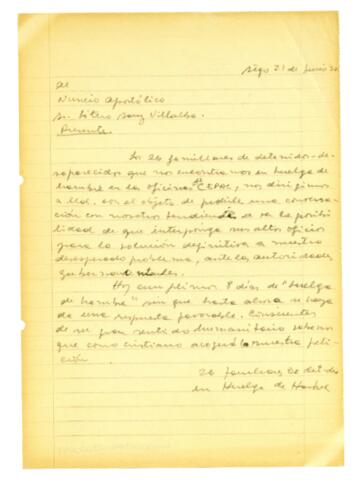 Stgo 21 de Junio
Al
Nuncio Apostólico
Sr. Sótero Sanz Villalba
Presente.
Los 26 familiares de detenidos-de-
saparecidos que nos encontramos en huelga de
hambre en la oficina de CEPAL, nos dirigimos
a Ud. con el objeto de pedirle una conversa-
ción con nosotros tendiente de ver la posibi-
lidad de que interponga sus altos oficios
para la solución definitiva a nuestro
desesperado problema, ante las autoridades
gubernamentales.
Hoy cumplimos 8 días de "huelga
de hambre" sin que hasta ahora se haya
dado una respuesta favorable. Conscientes
de su gran sentido humanitario sabemos
que como cristiano acogerá nuestra peti-
ción
26 familiares de det-des
en Huelga de Hambre